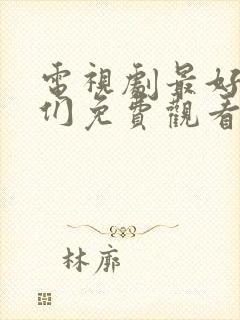 電視劇最好
们免費觀看
林廓